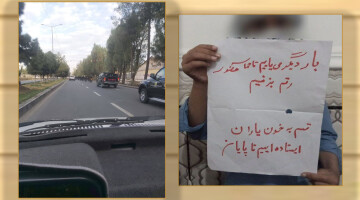 بار دیگر می یاییم تا
رقم بزنیم
قسم به خون یاران
ایستاده ایم تا پایان